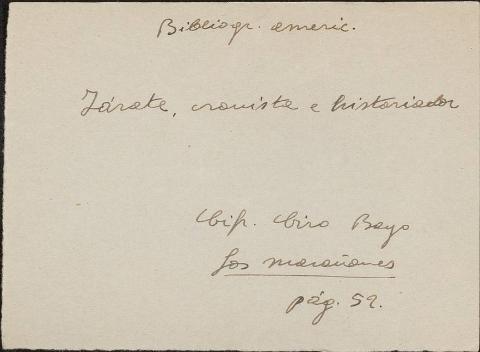 Bibliogr. americ.
Zárate, cronista e historiador
Cif. Ciro Bayo
Los marañones
pág. 52.